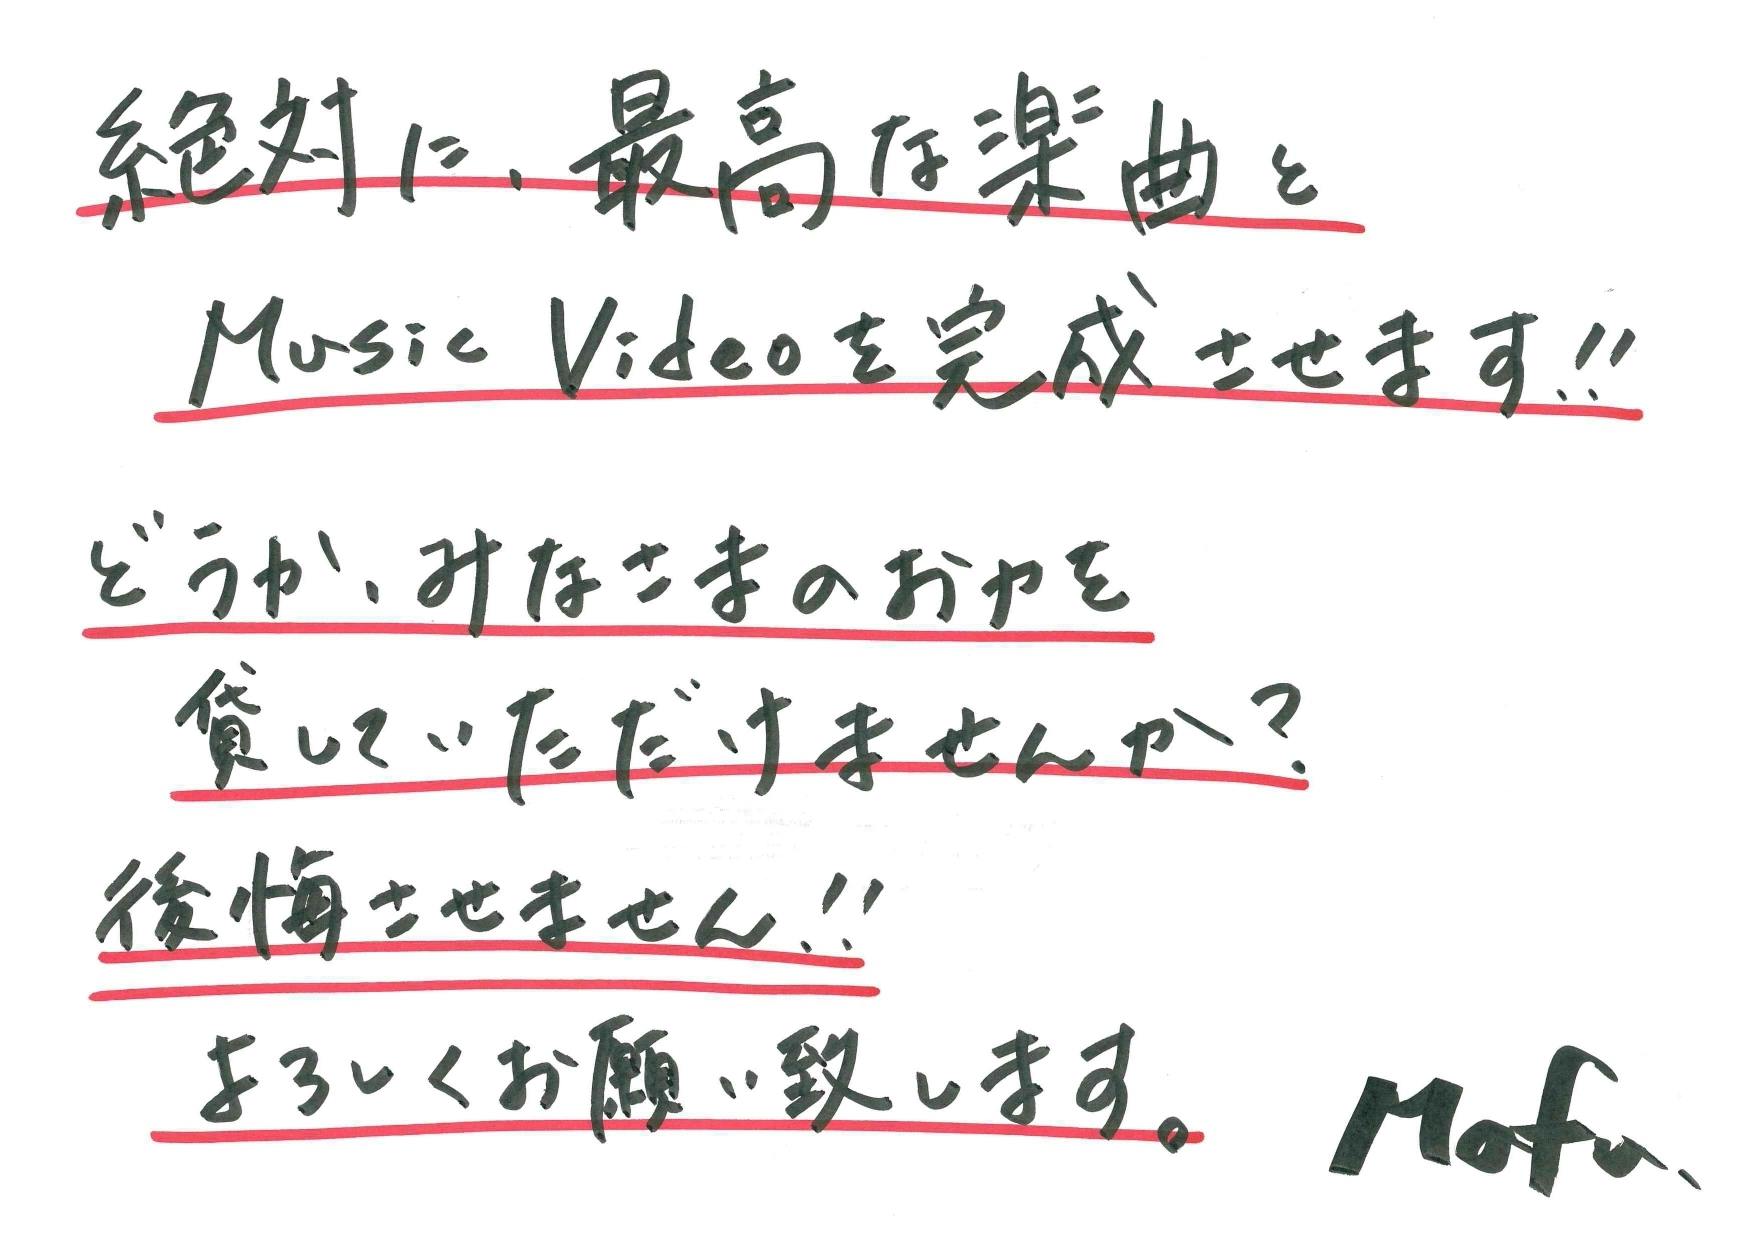 絶対に、最高な楽曲と
Music Videoを完成させます!!
どうか、みなさまのお力を
貸していただけませんか?
後悔させません!!
よろしくお願い致します。
Mofu.